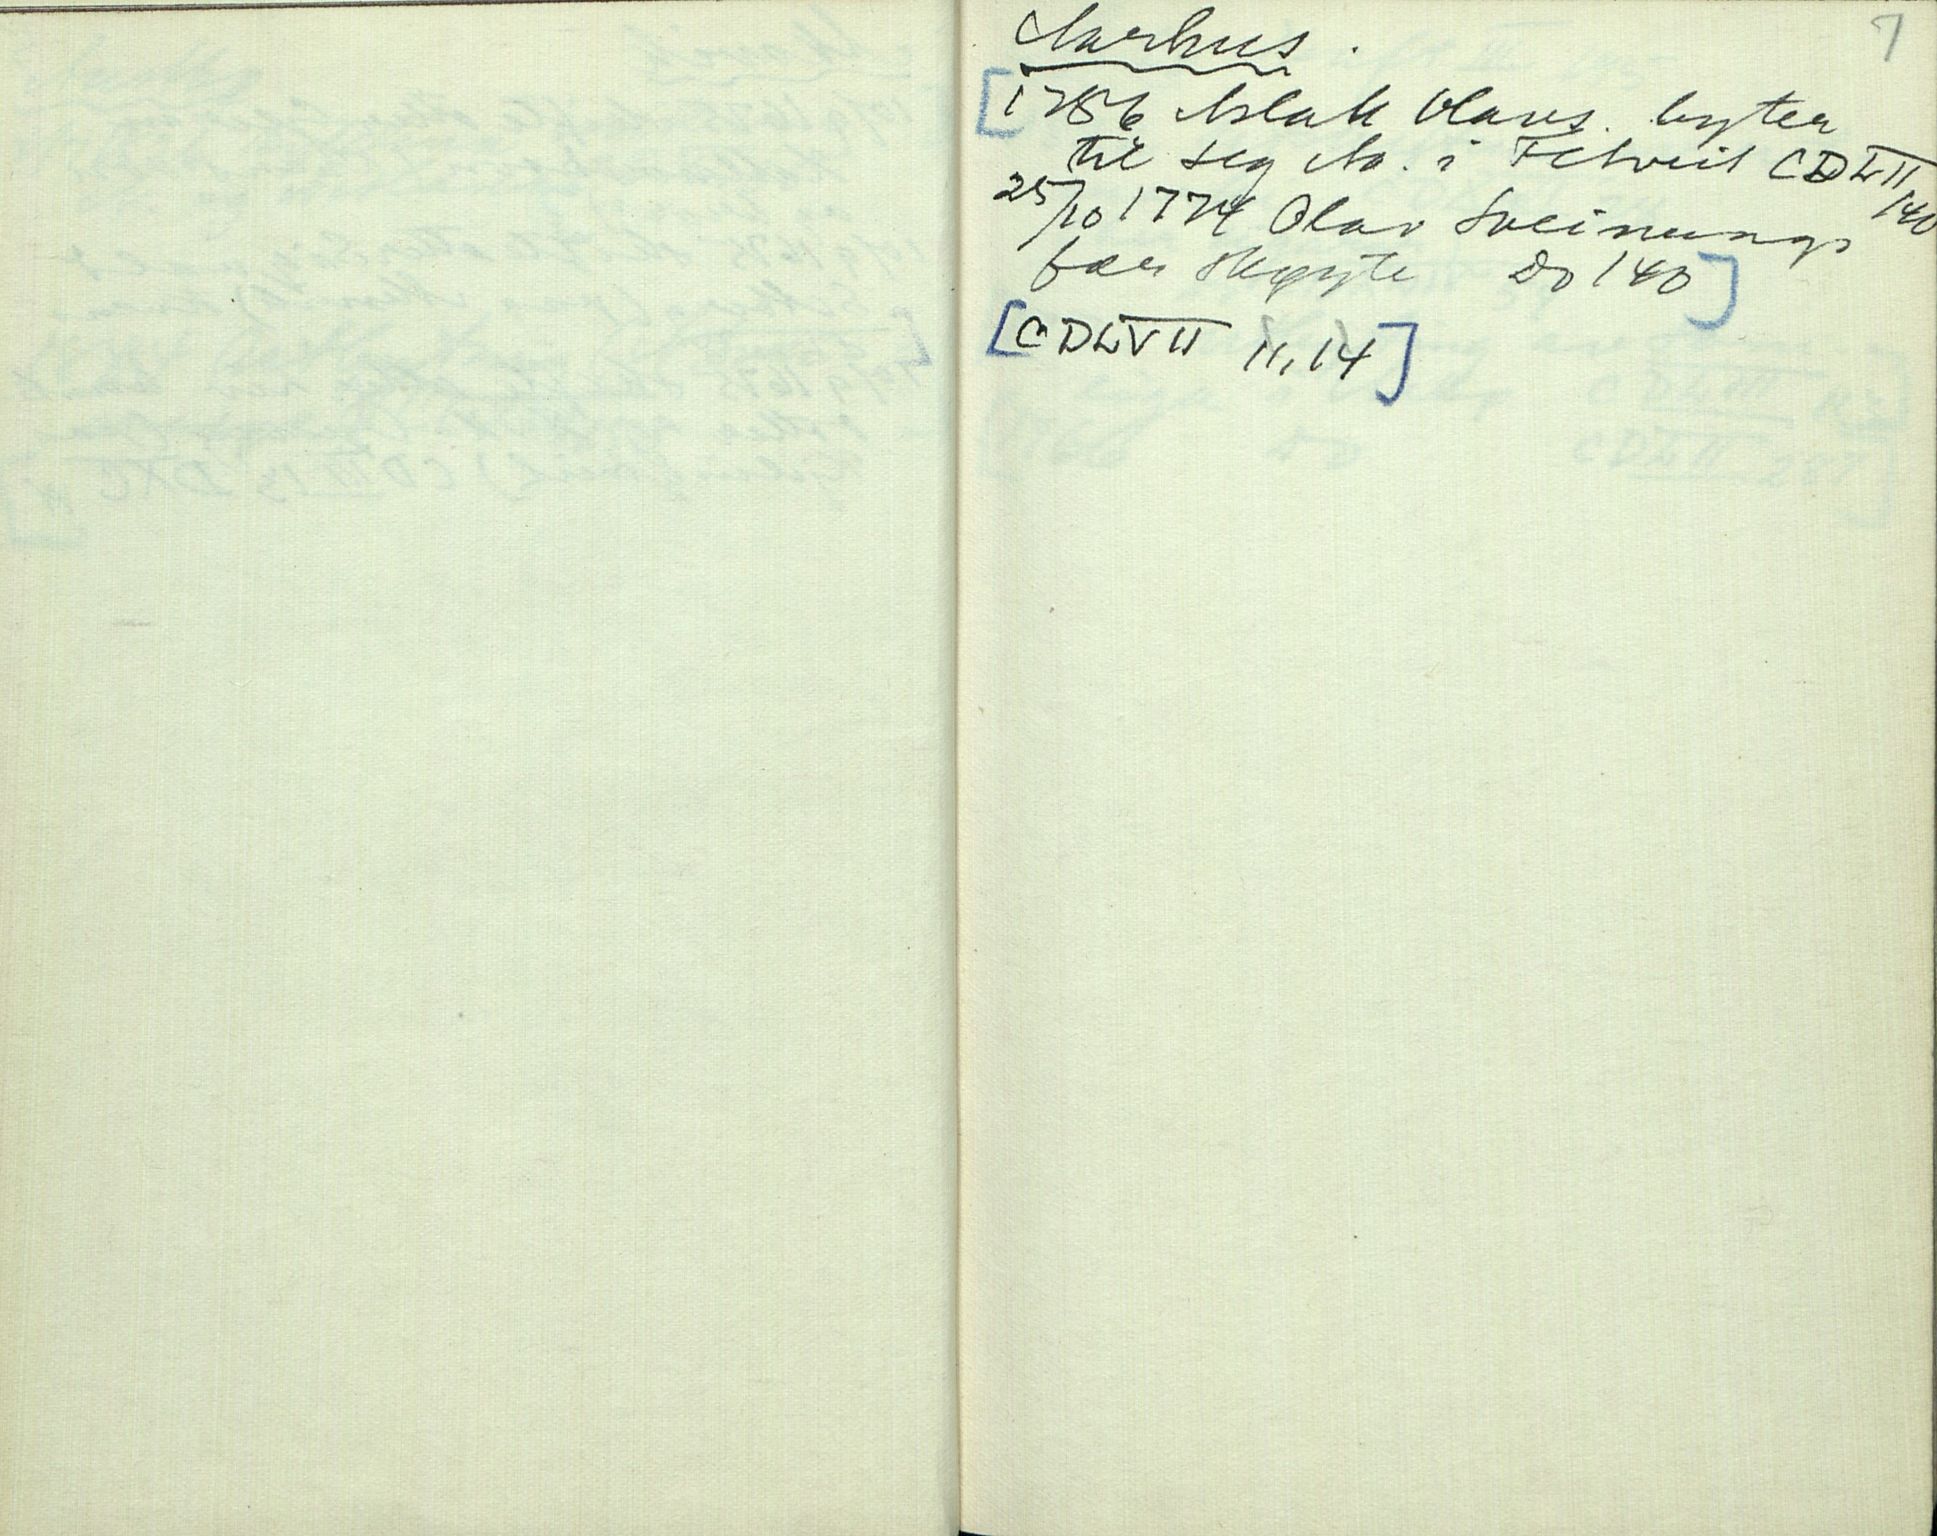 7
Aarhus.
[1756 Aslak Olavs. byter
til seg Aa. i Fetveit CDLII 140
25/10 1774 Olav Sveinungs
fær Skøyte Do 140]
[CDLVII 11, 14]